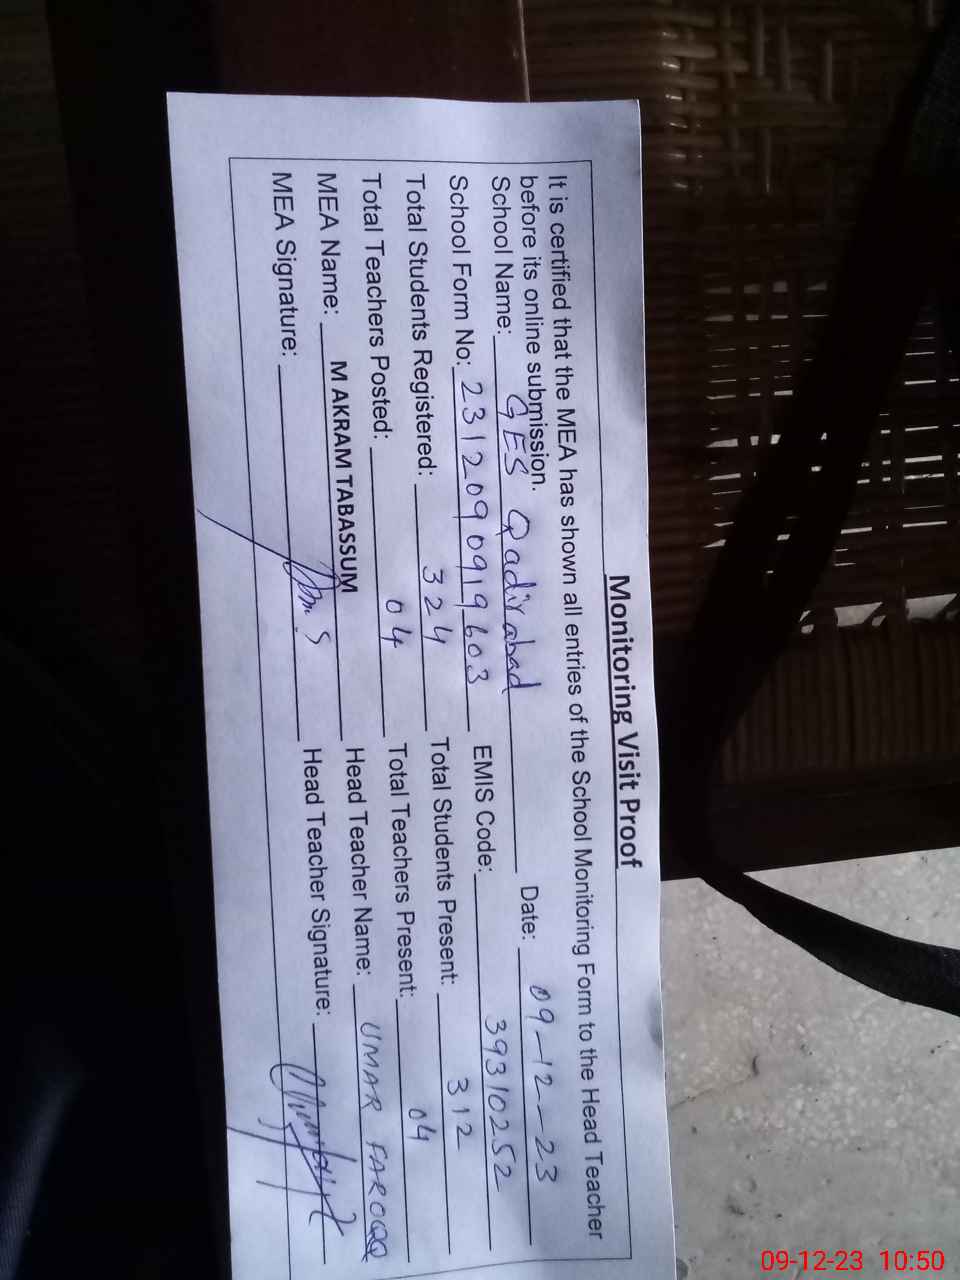 Monitoring Visit Proof
It is certified that the MEA has shown all entries of the School Monitoring Form to the Head Teacher
before its online submission.
School Name: GES Qadirabad Date: 09-12-23
School Form No: 2312090919603 EMIS Code: 39310252
Total Students Registered: 324 Total Students Present: 312
Total Teachers Posted: 04 Total Teachers Present: 04
MEA Name: M AKRAM TABASSUM Head Teacher Name: UMAR FAROQQ
MEA Signature: Head Teacher Signature:
09-12-23 10:50